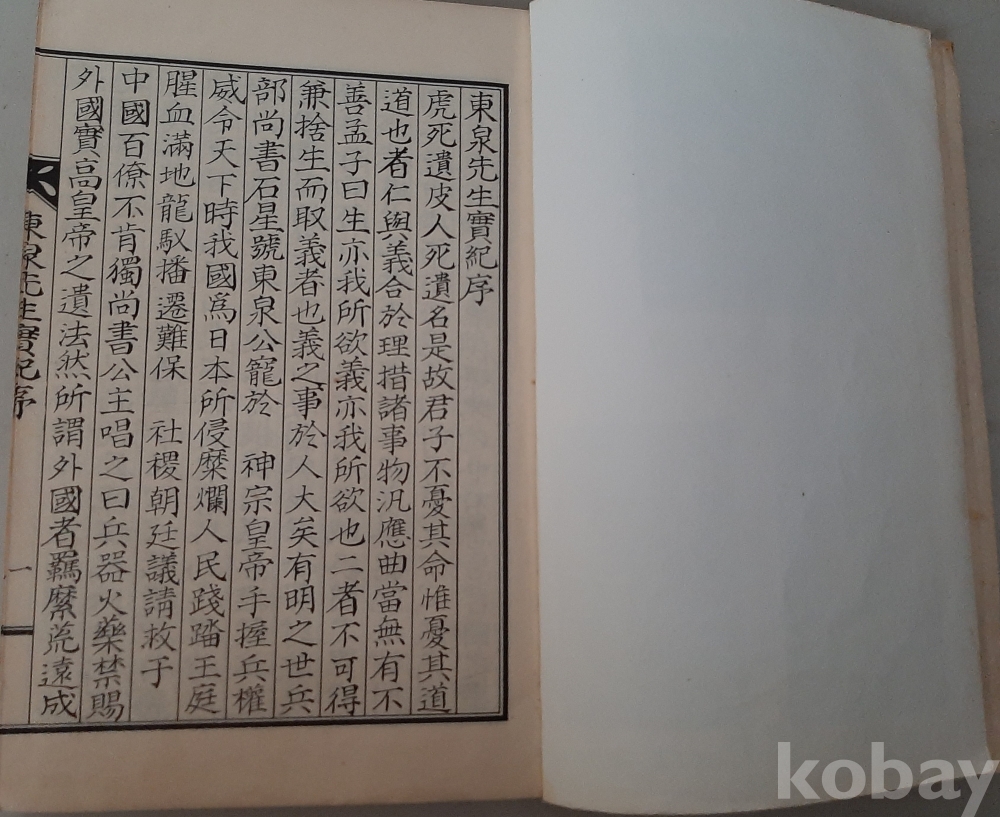 東泉先生實紀序
虎死遺皮人死遺名是故君子不憂其命惟憂其道
道也者仁與義合於理措諸事物汎應曲當無有不
善孟子曰生亦我所欲義亦我所欲也二者不可得
兼捨生而取義者也義之事於人大矣有明之世兵
部尚書石星號東泉公寵於 神宗皇帝手握兵權
威令天下時我國爲日本所侵糜爛人民踐踏王庭
腥血滿地龍馭播遷難保 社稷朝廷議請救于
中國百僚不肯獨尚書公主唱之曰兵器火藥禁賜
外國實高皇帝之遺法然所謂外國者羈縻荒遠成
東泉先生實紀序
一
kobay